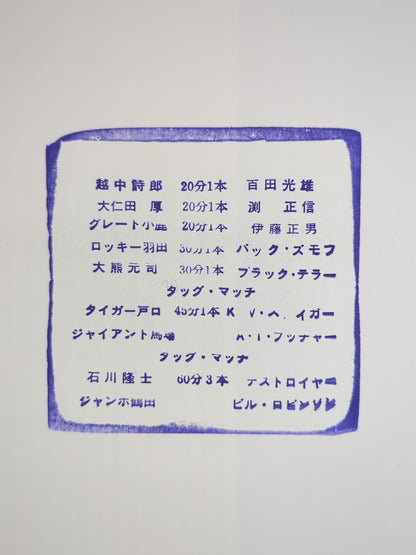 越中詩郎 20分1本 百田光雄
大仁田 厚 20分1本 渕 正信
グレート小鹿 20分1本 伊藤正男
ロッキー羽田 30分1本 バック・ズモフ
大熊元司 30分1本 ブラック・テラー
タッグ・マッチ
タイガー戸口 45分1本 K・V・A・イガー
ジャイアント馬場 A・T・ブッチャー
タッグ・マッチ
石川隆士 60分3本 デストロイヤー
ジャンボ鶴田 ビル・ロビンソン